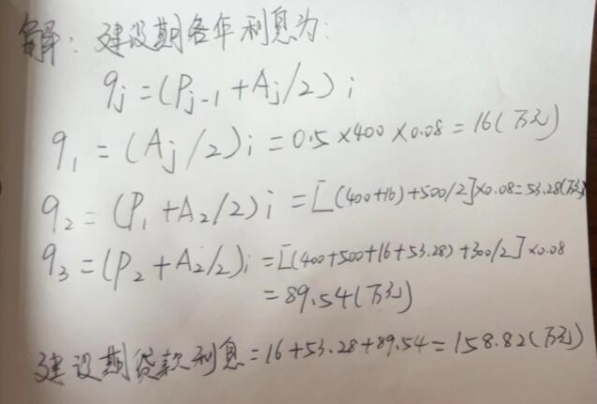 解：建设期各年利息为：
qj=(Pj-1+Aj/2)i
q1=(Aj/2)i=0.5×400×0.08=16(万元)
q2=(P1+A2/2)i=[(400+16)+500/2]×0.08=53.28(万元)
q3=(P2+A2/2)i=[(400+500+16+53.28)+300/2]×0.08
=89.54(万元)
建设期贷款利息=16+53.28+89.54=158.82(万元)